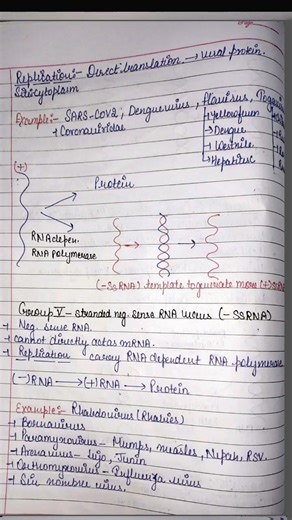 Replication:- Direct translation → viral protein.
Site cytoplasm
Example:- SARS-COV2, Denguevirus, flavirus,
→ Coronaviridae
→ Yellow fever
→ Dengue
→ Westnile
→ Hepatitis C
(+)
Protein
RNA depen.
RNA polymerase
(-SsRNA) template to generate more (+)
Group V - stranded neg. sense RNA virus (- SSRNA)
→ Neg. sense RNA.
→ cannot directly act as mRNA.
→ Replication carry RNA dependent RNA polymerase
(-) RNA → (+) RNA → Protein
Example:- Rhabdovirus (Rhabies)
→ Bornavirus
→ Paramyxovirus - Mumps, measles, Nipah, RSV.
→ Arenavirus - Lujo, Junin
→ Orthomyxovirus - Influenza virus
→ Sin nombre virus.